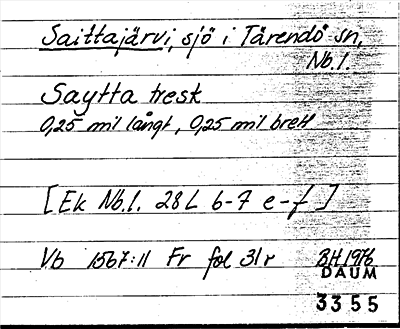 Saittajärvi, sjö i Tärendö sn,
Nb.l.
Saytta tresk
0,25 mil långt, 0,25 mil brett
[Ek Nb.l. 28L 6-7 e-f]
Vb 1567:11 Fr fol 31r BH 1976
DAUM
3355